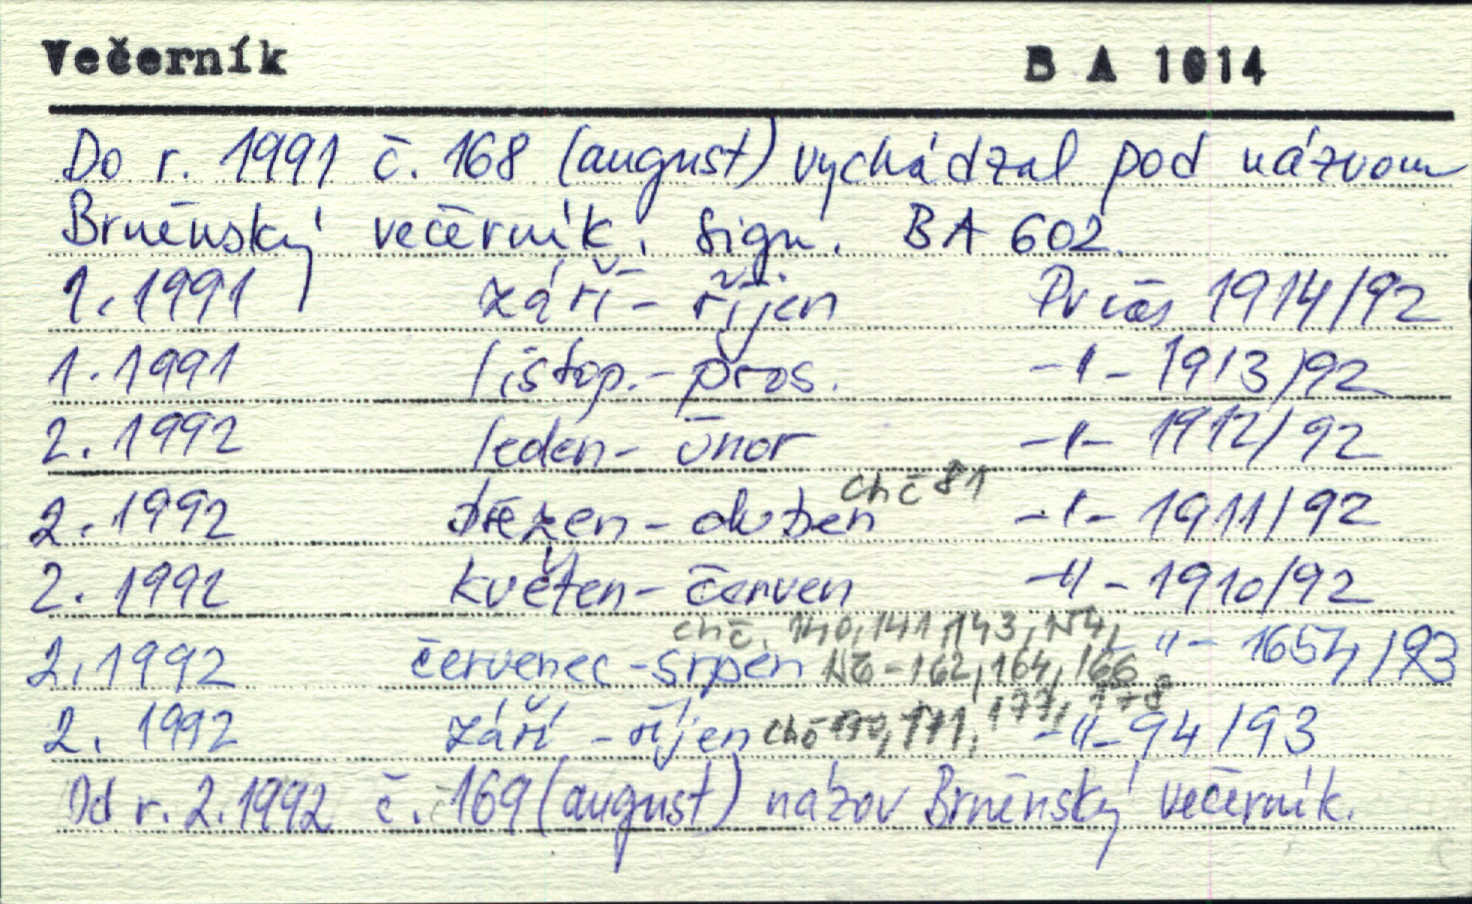 Večerník B A 1014
Do r. 1991 č. 168 (august) vychádzal pod názvom
Brněnský večerník. Sign. BA 602.
1. 1991 září - říjen Prvčas 1914/92
1. 1991 listop. - pros. -"- 1913/92
2. 1992 leden - únor -"- 1912/92
chč 81
2. 1992 březen - duben -"- 1911/92
2. 1992 květen - červen -"- 1910/92
chč. 140, 141, 143, 154,
2. 1992 červenec - srpen -162, 164, 166 -"- /93
2. 1992 září - říjen chč 170, 171, 177, 178 -"- 94/93
Od r. 2. 1992 č. 169 (august) názov Brněnský večerník.